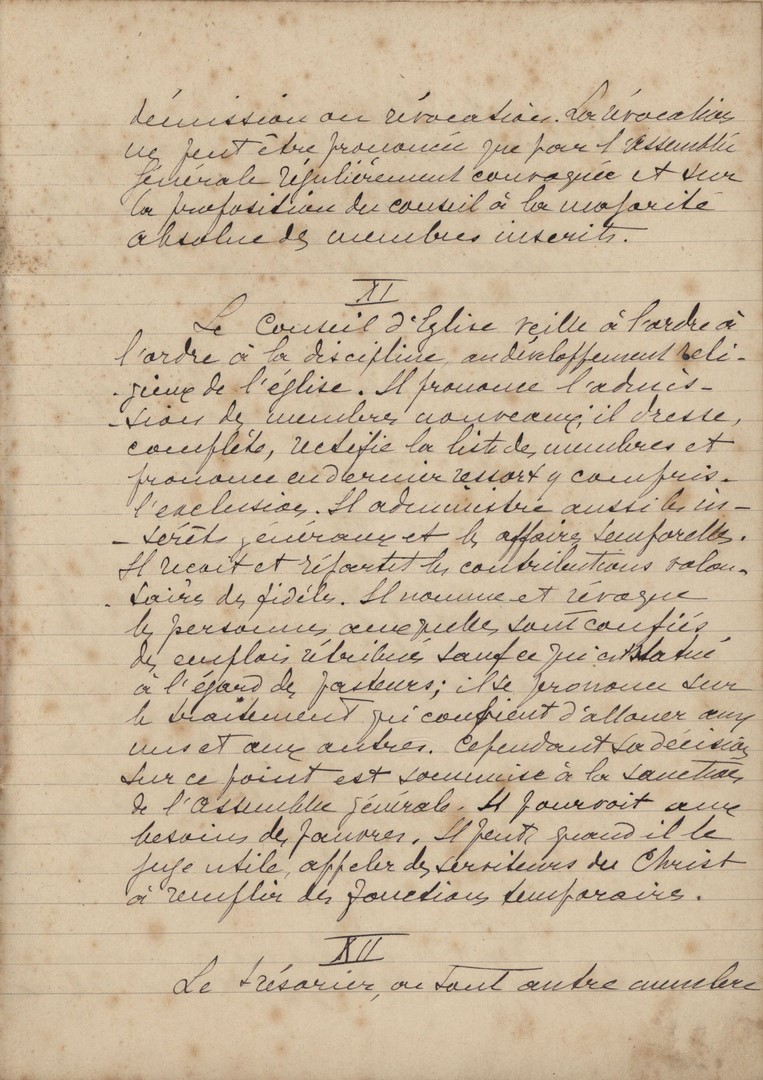 démission ou révocation. La révocation
ne peut être prononcée que par l'Assemblée
Générale régulièrement convoquée et sur
la proposition du conseil à la majorité
absolue des membres inscrits.
XI
Le Conseil d'Eglise veille à l'ordre à
l'ordre à la discipline, au développement reli-
-gieux de l'église. Il prononce l'admis-
-sion des membres nouveaux; il dresse,
complète, rectifie la liste des membres et
prononce en dernier ressort y compris
l'exclusion. Il administre aussi les in-
-térêts généraux et les affaires temporelles.
Il reçoit et répartit les contributions volon-
-taires des fidèles. Il nomme et révoque
les personnes auxquelles sont confiés
des emplois rétribués sauf ce qui est statué
à l'égard des pasteurs; il se prononce sur
le traitement qui convient d'allouer aux
uns et aux autres. Cependant sa décision
sur ce point est soumise à la sanction
de l'Assemblée générale. Il pourvoit aux
besoins des pauvres. Il peut, quand il le
juge utile, appeler des serviteurs du Christ
à remplir des fonctions temporaires.
XII
Le trésorier, ou tout autre membre